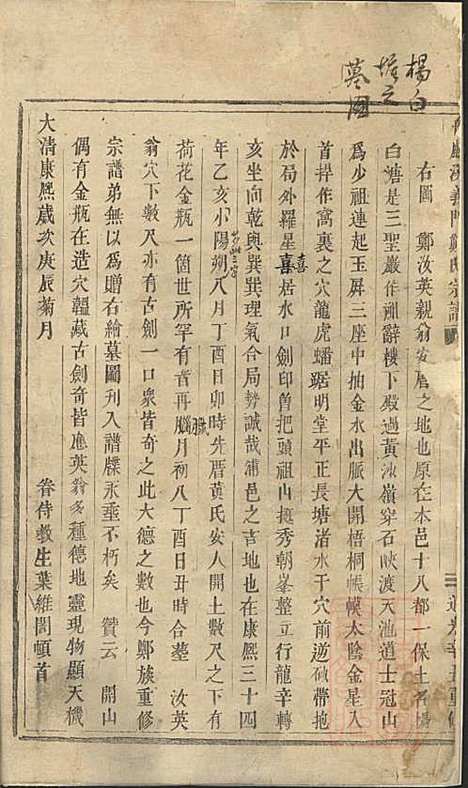 楊白
塘之
墓圖
義門鄭氏宗譜
右圖 鄭汝英親翁安厝之地也原在本邑十八都一保土名楊
白塘是三聖嚴作祖辭樓下殿過黃沙嶺穿石峽渡天池道士冠山
為少祖連起玉屏三座中抽金水出脈大開梧桐帳幙太陰金星入
首捍作窩裏之穴龍虎蟠踞明堂平正長塘渚水于穴前逆砂帶抱
於局外羅星喜居水口劍印曾把頭祖山挺秀朝峯整立行龍辛轉
亥坐向乾與巽巽理氣合局勢誠哉浦邑之吉地也在康熙三十四
年乙亥小陽朔八月丁酉日卯時先厝黃氏安人開土數尺之下有
荷花金瓶一個世所罕有者再臘月初八丁酉日丑時合塟 汝英
翁穴下數尺亦有古劍一口衆皆奇之此大德之數也今鄭族重修
宗譜弟無以爲贈右繪墓圖刋入譜牒永垂不朽矣 贊云 開山
偶有金瓶在造穴韞藏古劍奇皆應英翁多種德地靈現物顯天機
大清康熙歲次庚辰菊月 眷侍教生葉維閣頓首